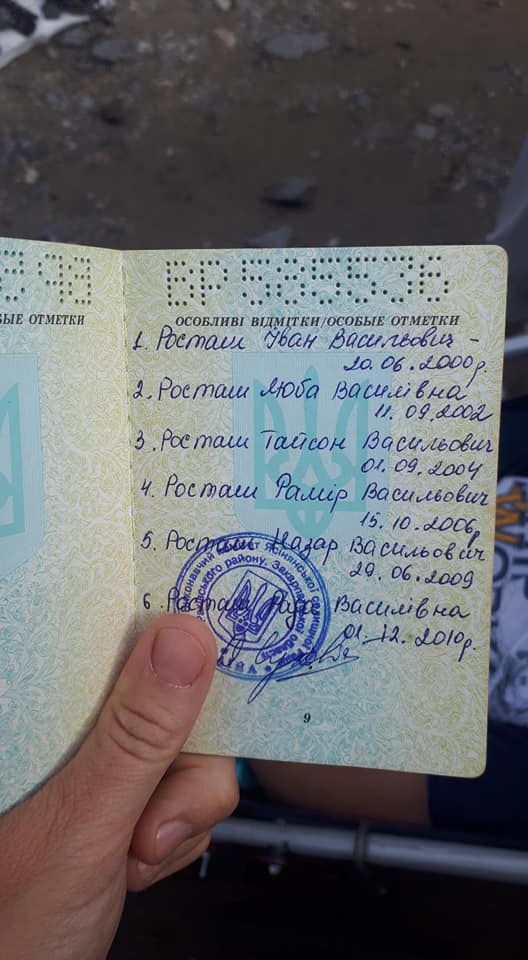 ВР 585536
ЫЕ ОТМЕТКИ
ОСОБЛИВІ ВІДМІТКИ/ОСОБЫЕ ОТМЕТКИ
1. Росташ Іван Васильович -
20.06.2000р.
2. Росташ Люба Василівна
11.09.2002
3. Росташ Тайсон Васильович
01.09.2004
4. Росташ Рамір Васильович
15.10.2006р
5. Росташ Назар Васильович
29.06.2009
6. Росташ Василівна
01.12.2010р.
Ясінянської селищної
району, Закарпатської області
9